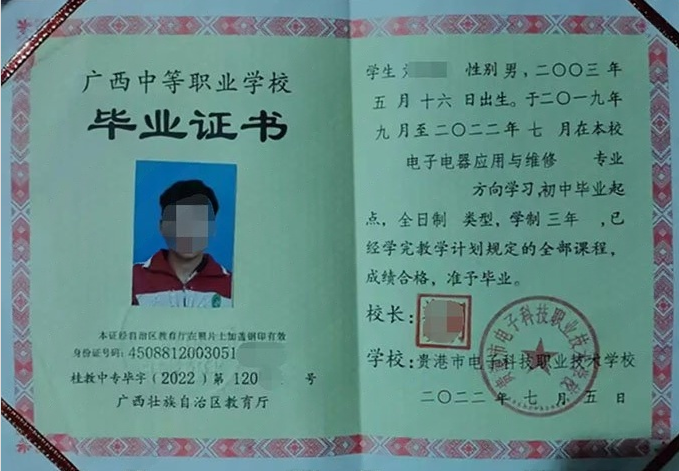 广西中等职业学校
毕业证书
本证经自治区教育厅在照片上加盖钢印有效
身份证号码:4508812003051
桂教中专毕字(2022)第120 号
广西壮族自治区教育厅
学生 性别男,二〇〇三年
五月十六日出生。于二〇一九年
九月至二〇二二年七月在本校
电子电器应用与维修 专业
方向学习,初中毕业起
点,全日制 类型,学制三年 ,已
经学完教学计划规定的全部课程,
成绩合格,准予毕业。
校长:
学校:贵港市电子科技职业技术学校
二〇二二年七月五日
贵港市电子科技职业技术学校